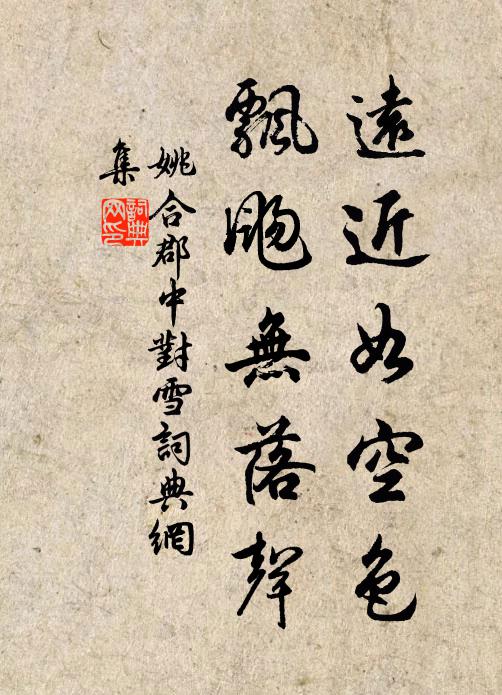 遠近如空色
飄颺無落聲
姚合郡中對雪詞典網
集
詞典網印